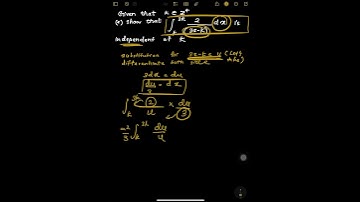 Given that k ∈ Z⁺
(a) show that ∫ₖ³ᵏ 2/(3x-k) dx is
independent of k
substitution for 3x-k = u
differentiate both sides
3dx = du
du/3 = dx
∫ₖ³ᵏ 2/u × du/3
2/3 ∫ₖ³ᵏ du/u